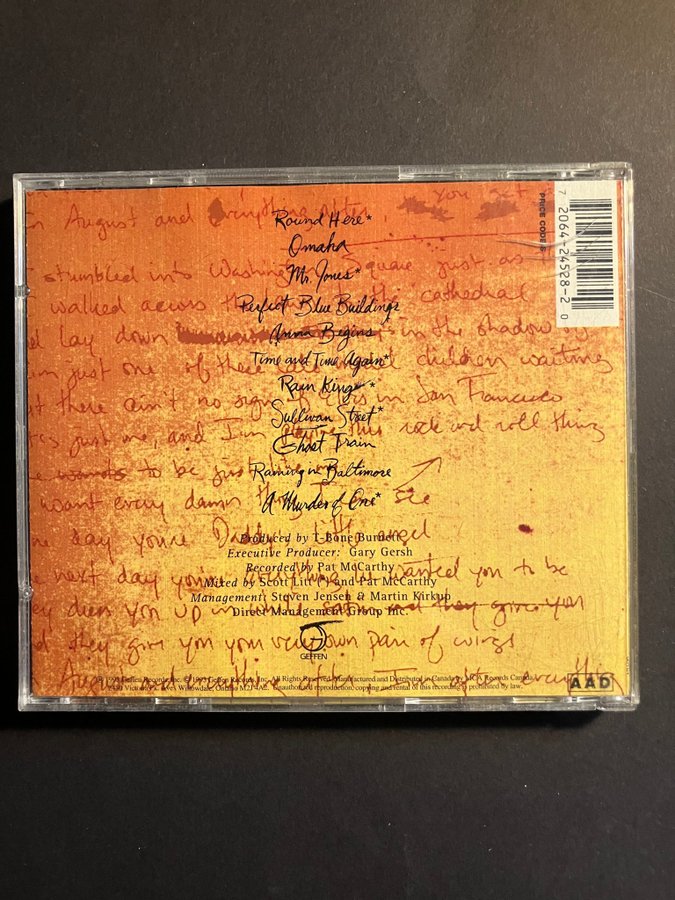 Round Here*
Omaha
Mr. Jones*
Perfect Blue Buildings
Anna Begins
Time and Time Again*
Rain King*
Sullivan Street*
Ghost Train
Raining in Baltimore
A Murder of One*
Produced by T-Bone Burnett
Executive Producer: Gary Gersh
Recorded by Pat McCarthy
Mixed by Scott Litt and Pat McCarthy
Management: Steven Jensen & Martin Kirkup
Direct Management Group Inc.
GEFFEN
Geffen Records, Inc. © 1993 Geffen Records, Inc. All Rights Reserved. Manufactured and Distributed in Canada by MCA Records Canada
2450 Victoria Park Ave., Willowdale, Ontario M2J 4A2. Unauthorized reproduction, copying and rental of this recording is prohibited by law.
AAD
PRICE CODE:
7 20642-4528-2 0
in August and everything after you get
stumbled into Washington Square just as
walked across the cathedral
lay down in the shadow
just one of these children waiting
there ain't no sign of in San Francisco
just me, and I'm this rock and roll thing
to be just
want every damn thing I see
day you're Daddy's little angel
next day you're wanted you to be
dress you up in and they give you
they give you your very own pair of wings
August and everything after I'm after everything